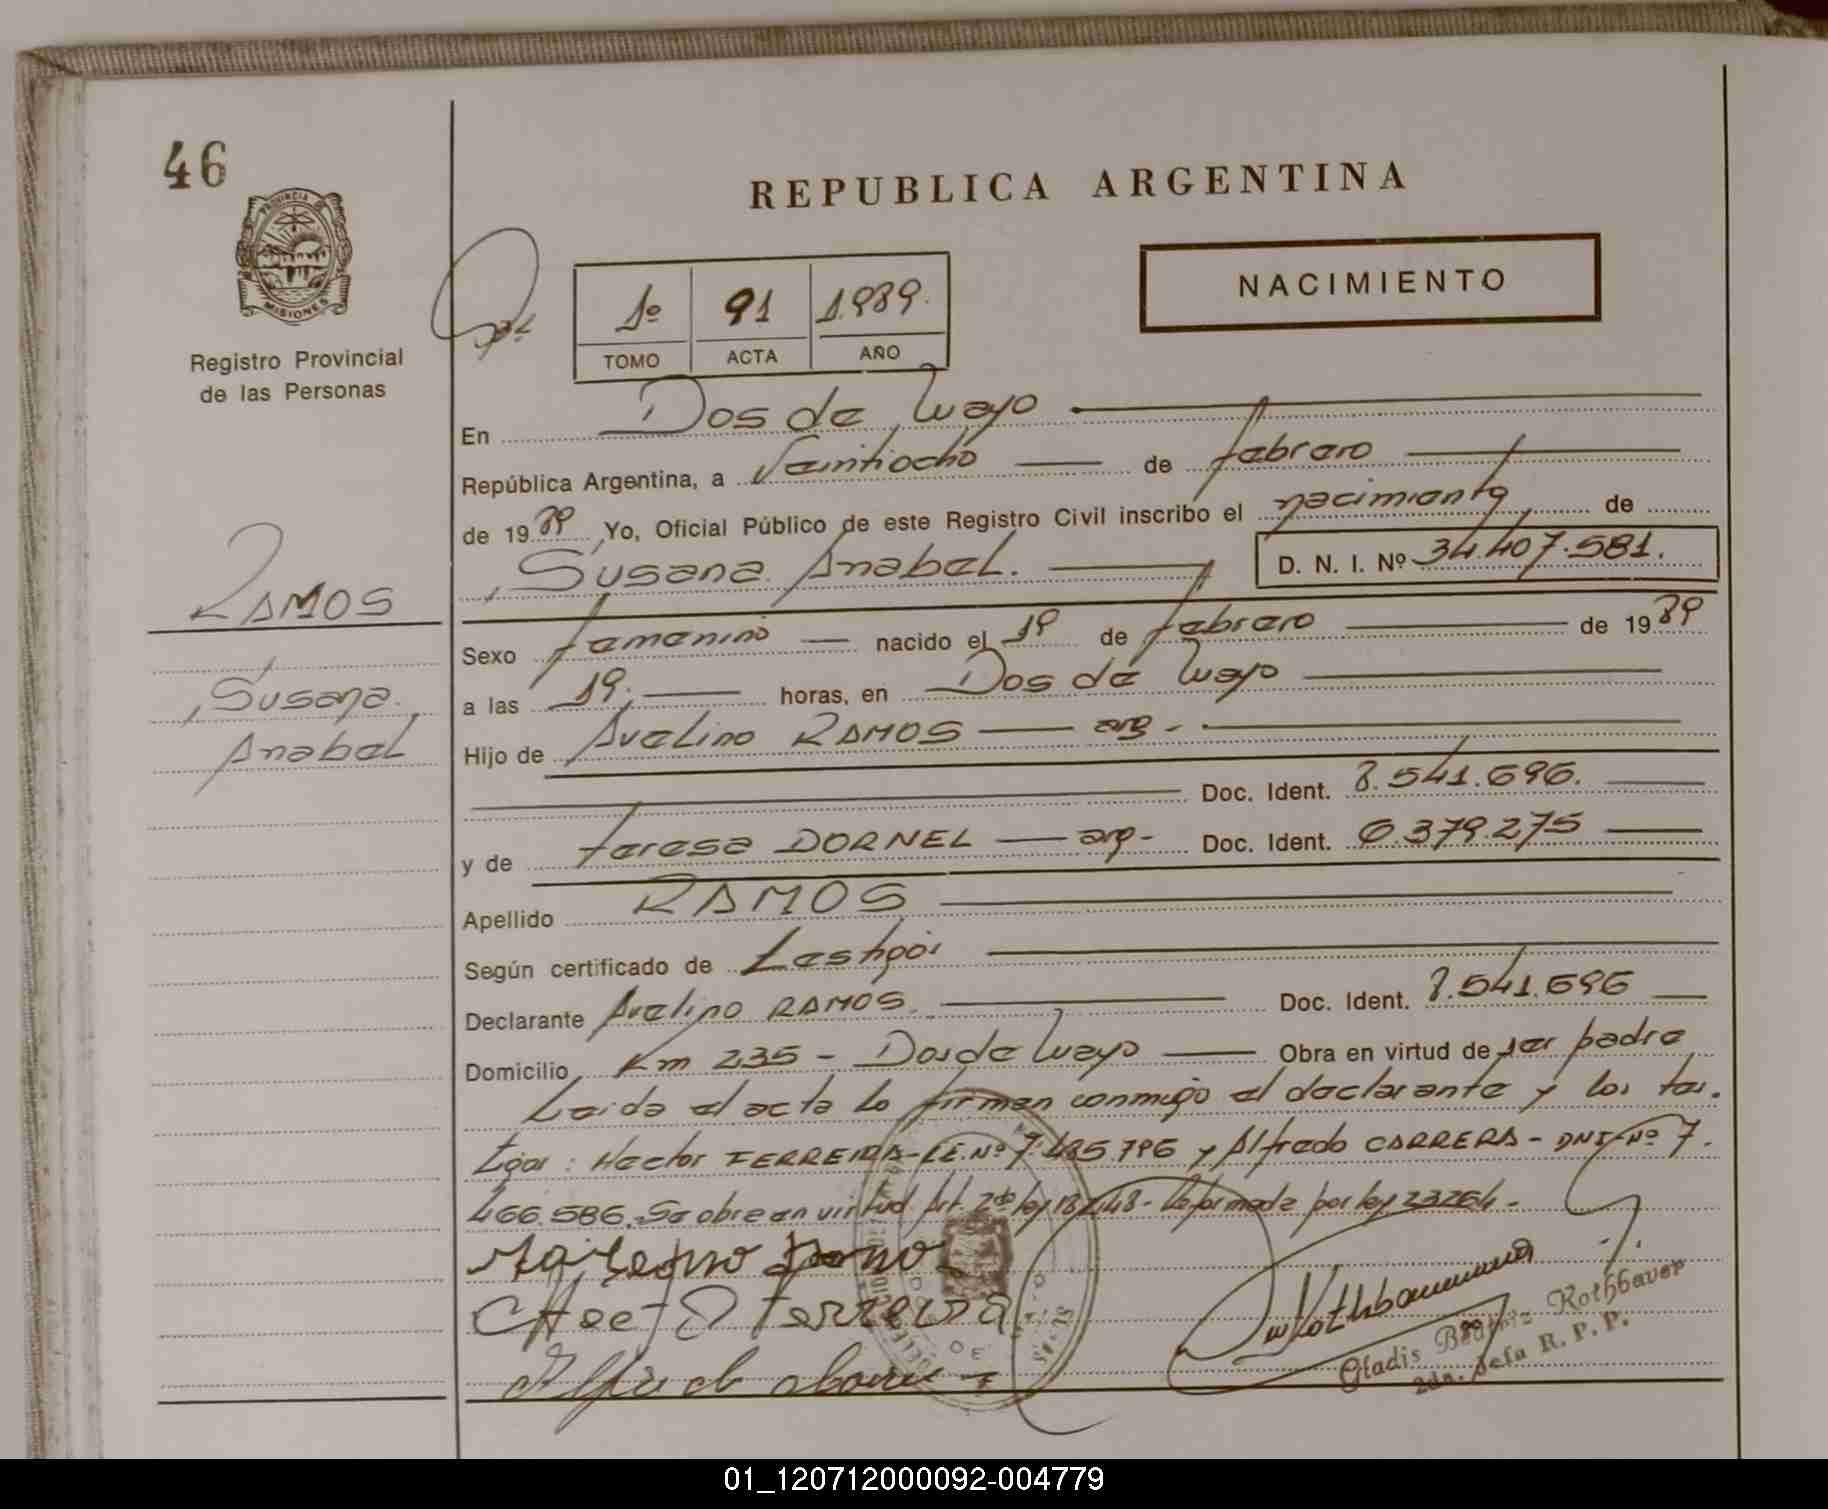 46
PROVINCIA DE
MISIONES
Registro Provincial
de las Personas
REPUBLICA ARGENTINA
NACIMIENTO
1º 91 1.989.
TOMO ACTA AÑO
En Dos de Mayo
República Argentina, a Veintiocho de febrero
de 1989 Yo, Oficial Público de este Registro Civil inscribo el nacimiento de
Susana Anabel. D. N. I. Nº 34.407.581.
RAMOS
Susana
Anabel
Sexo femenino nacido el 19 de febrero de 1989
a las 19. horas, en Dos de Mayo
Hijo de Avelino RAMOS arg-
Doc. Ident. 8.541.696.
y de teresa DORNEL arg- Doc. Ident. 6.379.275
Apellido RAMOS
Según certificado de Testigos
Declarante Avelino RAMOS. Doc. Ident. 8.541.696
Domicilio Km 235 - Dos de Mayo Obra en virtud de ser padre
Leida el acta lo firman conmigo el declarante y los tes.
tigos: Hector FERREIRA-L.E.Nº 7.485.796 y Alfredo CARRERA - DNI-Nº 7.
466.586. Se obre en virtud Art. 2do ley 18248- Reformada por ley 23264-
Ferreira
Gladis Beatriz Rothbaver
2da. Jefa R. P. P.
01_120712000092-004779